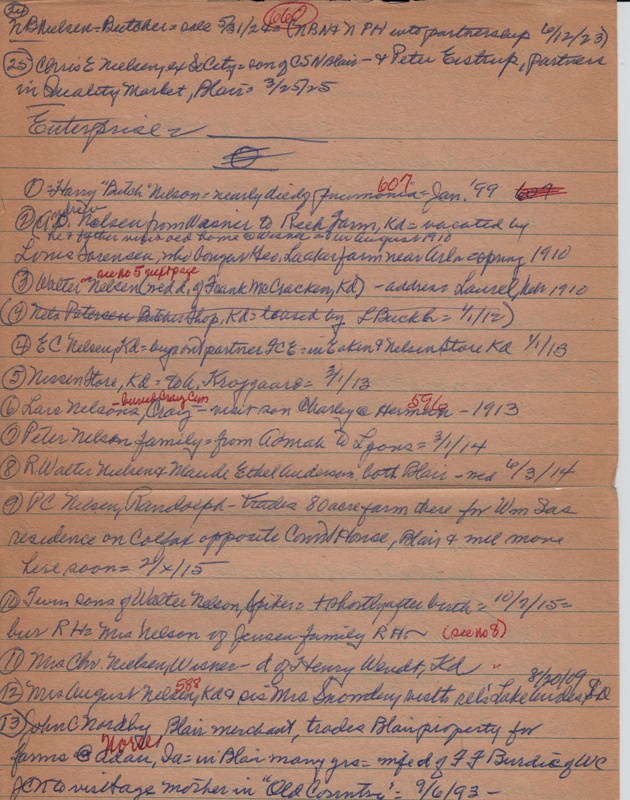 24
NB Nielsen = Butcher = sale 5/31/24 = (NBN & N PH into partnership 6/12/23)
660
25 E Nielsen, ex So City = son of CS N Blair - & Peter Eistrup, partners
in Quality Market, Blair = 3/25/25
Enterprise =
1 = Harry "Butch" Nelson = nearly died of pneumonia = Jan. '99
607 609
2 Nelsen from Wisner to Reek Farm, Kd = vacated by
he & father old home @ = in August 1910
Louis Sorensen, who Geo. Laaker farm near Arl spring 1910
see no 5 next page
3 Walter Nelsen (wed d. of Frank McCracken, Kd) - address Laurel, Neb 1910
(4 Nels Petersen Butcher Shop, Kd = leased by L = 1/1/12)
4 EC Nelsen, Kd = buys out partner ICE = in Eaken & Nelsen Store Kd 1/1/13
5 Nissen Store, Kd = to A. Kroggaard = 3/1/13
- buried Craig Cem 596
6 Lars Nelsons, Craig = visit son Charley @ Herman - 1913
7 Peter Nelson family = from Admah to Lyons = 3/1/14
8 R Walter Nielsen & Maude Ethel Anderson both Blair - wed 6/3/14
9 PC Nelsen, Randolph - trades 80 acre farm there for Wm Sas
residence on Colfax opposite Court House, Blair & will move
here soon = 2/x/15
10 Twin sons of Walter Nelson, Spiker = + shortly after birth = 10/2/15 =
bur RH = Mrs Nelson of Jensen family RH (see no 8)
11 Mrs Chr Nielsen, Wisner - d of Henry Wendt, Kd "
588 8/20/09
12 Mrs August Nelsen, Kd & sis Mrs visit rel's Lake Andes SD
13 John C Nordby Blair merchant, trades Blair property for
Horses
farms @ Adair, Ia = in Blair many yrs = wife d of F F Burdic of WC
JCN to visit age mother in "Old Country" = 9/6/93 -